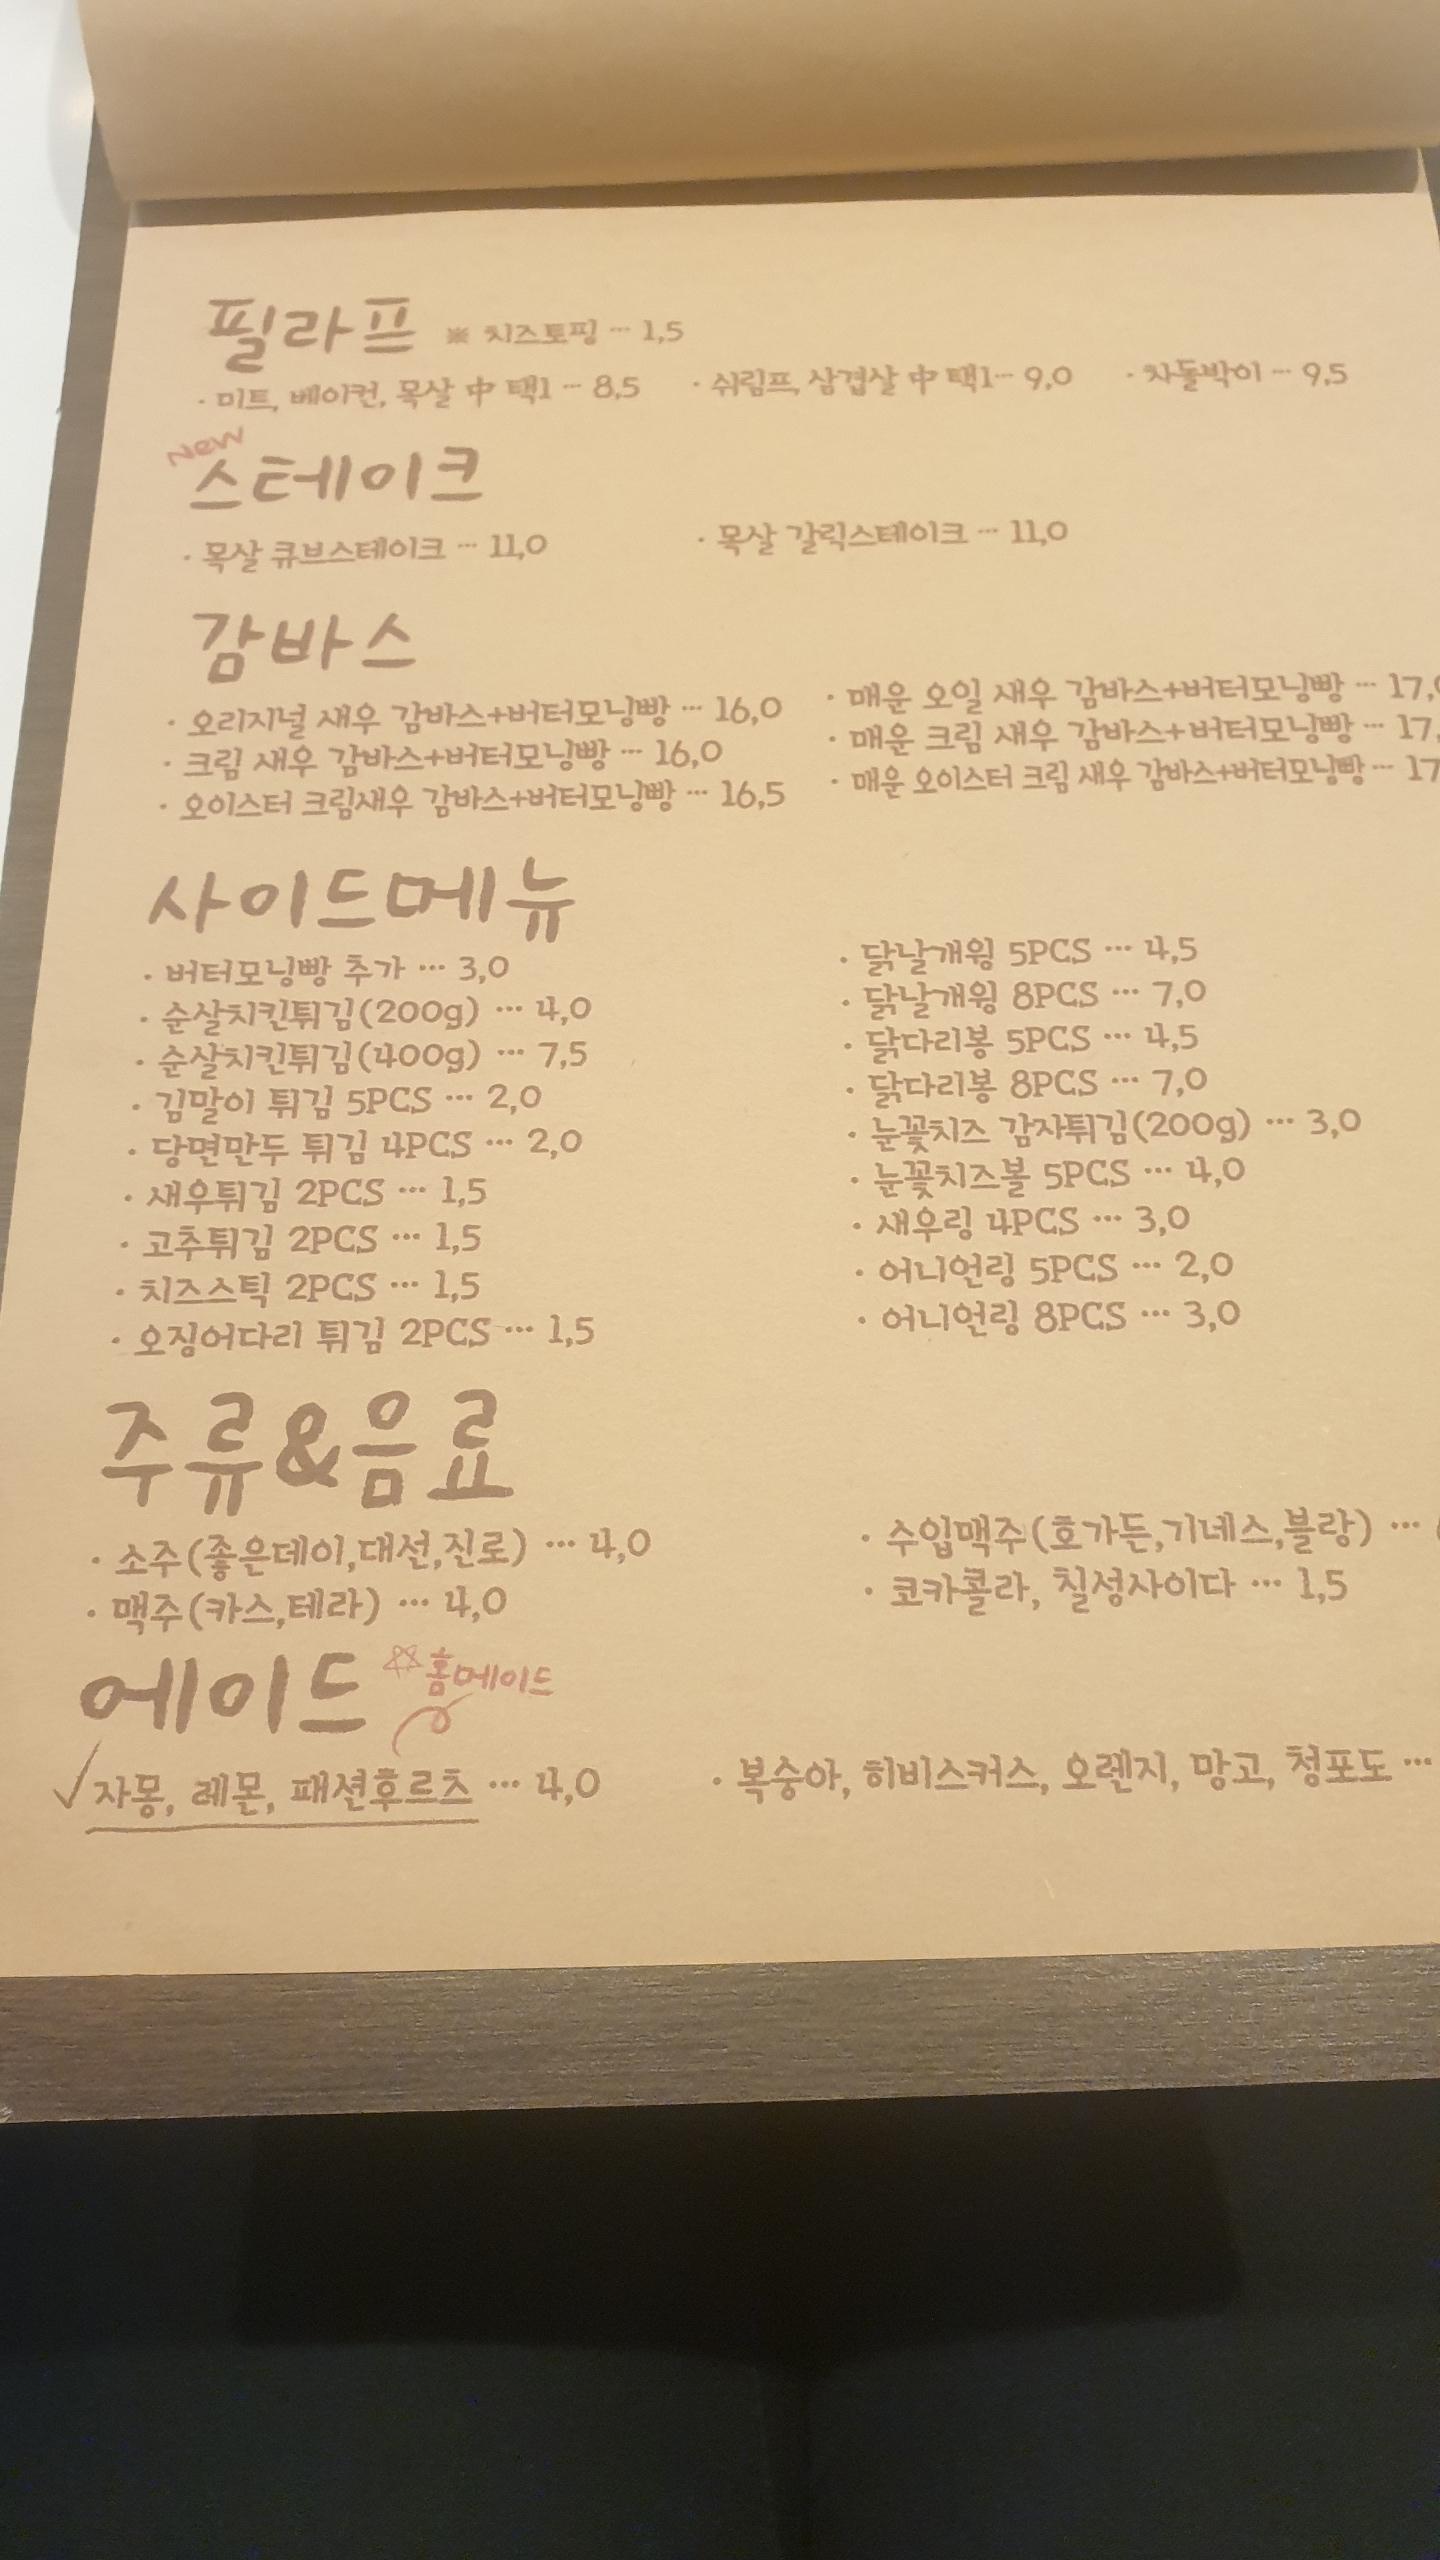 필라프 ※ 치즈토핑 ... 1,5
· 미트, 베이컨, 목살 中 택1 ... 8,5 · 쉬림프, 삼겹살 中 택1 ... 9,0 · 차돌박이 ... 9,5
New
스테이크
· 목살 큐브스테이크 ... 11,0 · 목살 갈릭스테이크 ... 11,0
감바스
· 오리지널 새우 감바스+버터모닝빵 ... 16,0
· 크림 새우 감바스+버터모닝빵 ... 16,0
· 오이스터 크림새우 감바스+버터모닝빵 ... 16,5
· 매운 오일 새우 감바스+버터모닝빵 ... 17,
· 매운 크림 새우 감바스+버터모닝빵 ... 17,
· 매운 오이스터 크림 새우 감바스+버터모닝빵 ... 17
사이드메뉴
· 버터모닝빵 추가 ... 3,0
· 순살치킨튀김(200g) ... 4,0
· 순살치킨튀김(400g) ... 7,5
· 김말이 튀김 5PCS ... 2,0
· 당면만두 튀김 4PCS ... 2,0
· 새우튀김 2PCS ... 1,5
· 고추튀김 2PCS ... 1,5
· 치즈스틱 2PCS ... 1,5
· 오징어다리 튀김 2PCS ... 1,5
· 닭날개윙 5PCS ... 4,5
· 닭날개윙 8PCS ... 7,0
· 닭다리봉 5PCS ... 4,5
· 닭다리봉 8PCS ... 7,0
· 눈꽃치즈 감자튀김(200g) ... 3,0
· 눈꽃치즈볼 5PCS ... 4,0
· 새우링 4PCS ... 3,0
· 어니언링 5PCS ... 2,0
· 어니언링 8PCS ... 3,0
주류&음료
· 소주(좋은데이,대선,진로) ... 4,0
· 맥주(카스,테라) ... 4,0
· 수입맥주(호가든,기네스,블랑) ...
· 코카콜라, 칠성사이다 ... 1,5
에이드 홈메이드
자몽, 레몬, 패션후르츠 ... 4,0 · 복숭아, 히비스커스, 오렌지, 망고, 청포도 ...